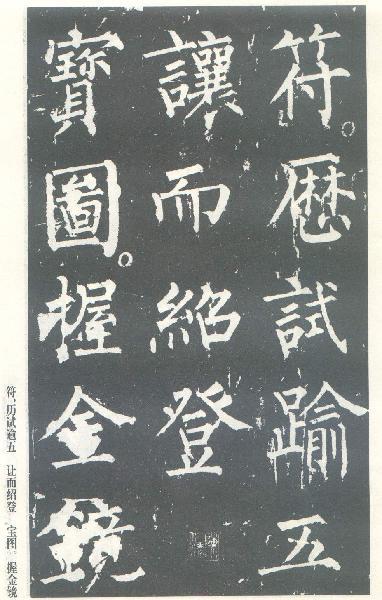 符。歷試踰五
讓而紹登
寶圖。握金鏡
符。历试逾五　让而绍登　宝图。握金镜